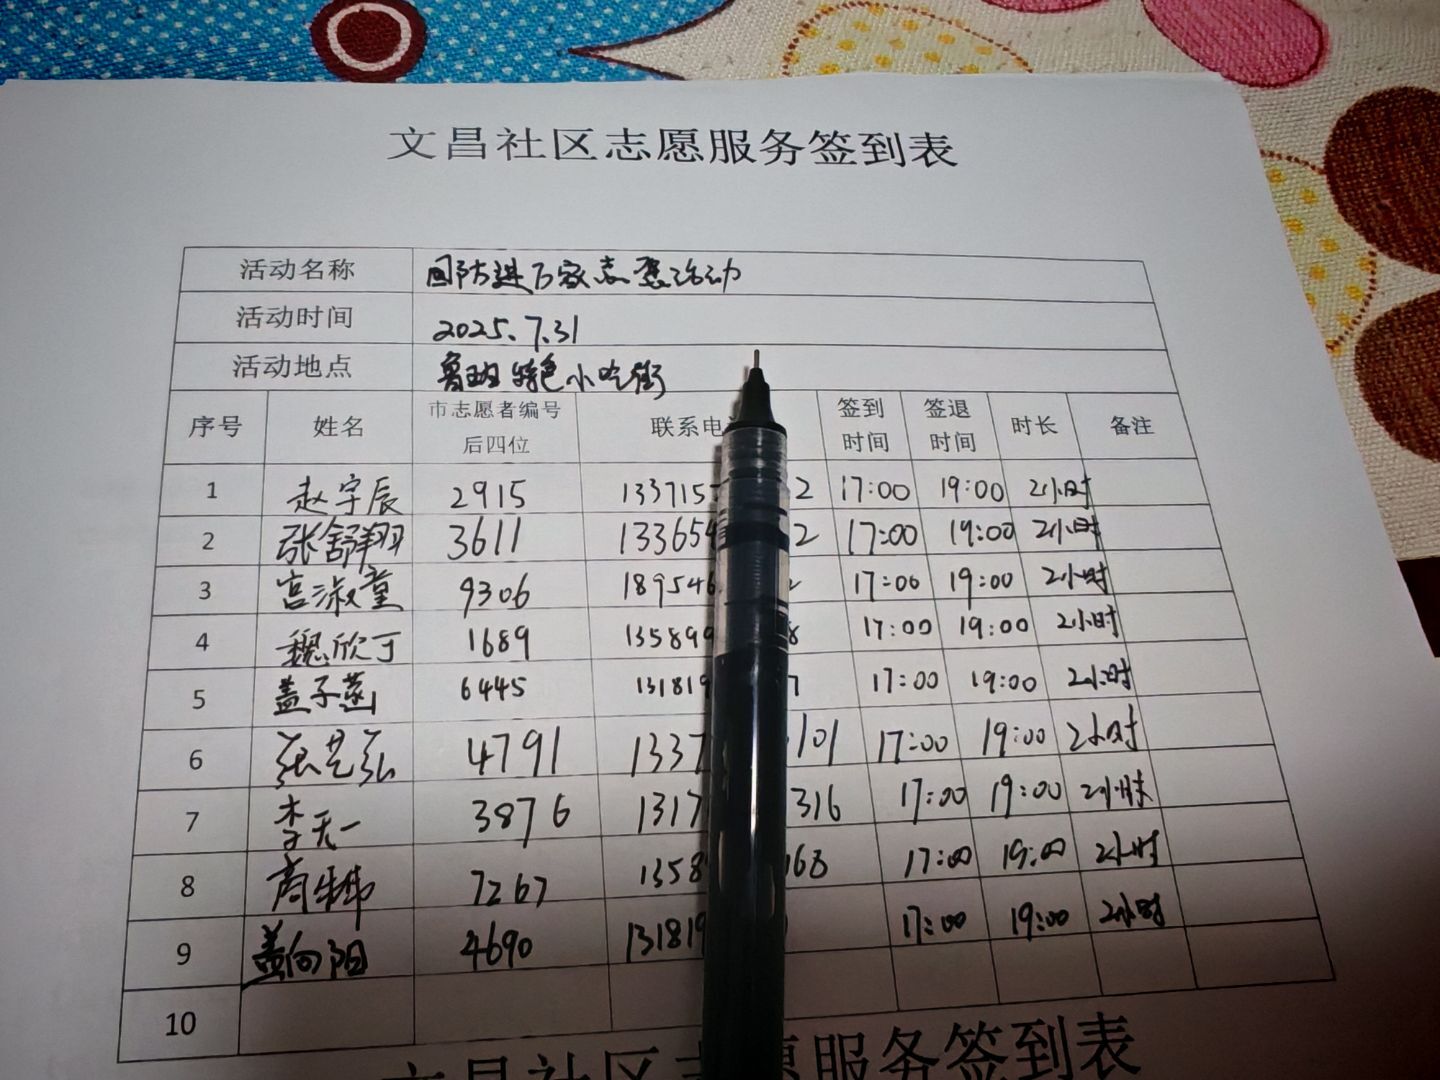 文昌社区志愿服务签到表
活动名称 国防进万家志愿活动
活动时间 2025.7.31
活动地点 鲁班特色小吃街
序号 姓名 市志愿者编号后四位 联系电 签到时间 签退时间 时长 备注
1 赵宇辰 2915 133715 2 17:00 19:00 2小时
2 张舒翔 3611 133654 2 17:00 19:00 2小时
3 宫淑童 9306 189546 17:00 19:00 2小时
4 魏欣丁 1689 135899 8 17:00 19:00 2小时
5 盖子菡 6445 131819 7 17:00 19:00 2小时
6 张艺弘 4791 1337 101 17:00 19:00 2小时
7 李天一 3876 1317 316 17:00 19:00 2小时
8 商 7267 1358 168 17:00 19:00 2小时
9 盖向阳 4690 131819 17:00 19:00 2小时
10
文昌社区志愿服务签到表